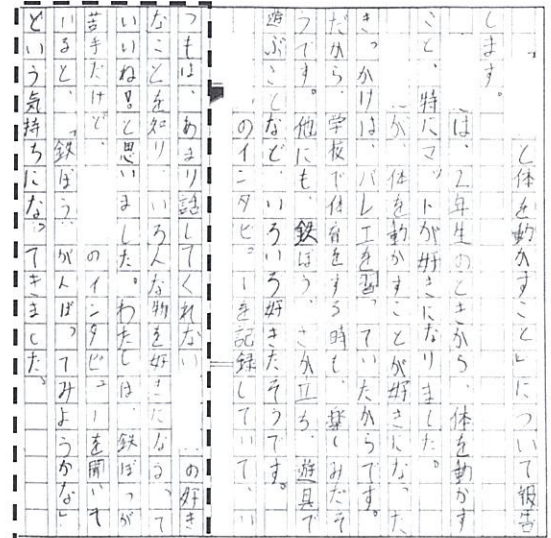 と体を動かすこと」について報告
します。
は、2年生のときから、体を動かす
こと、特にマットが好きになりました。
が、体を動かすことが好きになった
きっかけは、バレエを習っていたからです。
だから、学校で体育をする時も、楽しみだそ
うです。他にも、鉄ぼう、さか立ち、遊具で
遊ぶことなど、いろいろ好きだそうです。
のインタビューを記録していて、い
つもは、あまり話してくれない の好き
なことを知り、いろんな物を好きになるって
いいね!と思いました。わたしは、鉄ぼうが
苦手だけど、 のインタビューを聞いて
いると、「鉄ぼう、がんばってみようかな」
という気持ちになってきました。